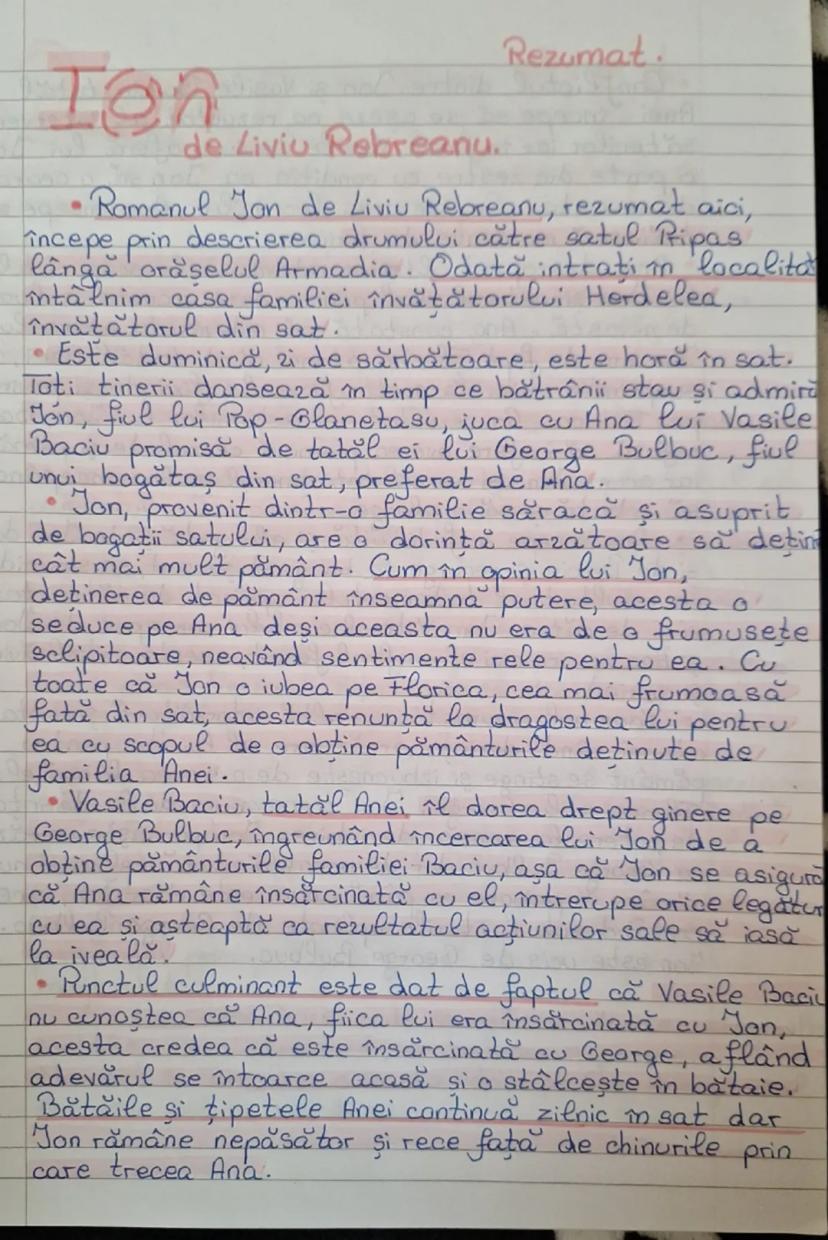 Rezumat.
Ion
de Liviu Rebreanu.
• Romanul Ion de Liviu Rebreanu, rezumat aici,
începe prin descrierea drumului către satul Pripas
lângă orășelul Armadia. Odată intrați în localitat
întâlnim casa familiei învățătorului Herdelea,
învățătorul din sat.
• Este duminică, zi de sărbătoare, este horă în sat.
Toți tinerii dansează în timp ce bătrânii stau și admiră
Ion, fiul lui Pop-Glanetasu, juca cu Ana lui Vasile
Baciu promisă de tatăl ei lui George Bulbuc, fiul
unui bogătaș din sat, preferat de Ana.
• Ion, provenit dintr-o familie săracă și asuprit
de bogații satului, are o dorință arzătoare să dețină
cât mai mult pământ. Cum în opinia lui Ion,
deținerea de pământ înseamnă putere, acesta o
seduce pe Ana deși aceasta nu era de o frumusețe
sclipitoare, neavând sentimente rele pentru ea. Cu
toate că Ion o iubea pe Florica, cea mai frumoasă
fată din sat, acesta renunță la dragostea lui pentru
ea cu scopul de a obține pământurile deținute de
familia Anei.
• Vasile Baciu, tatăl Anei îl dorea drept ginere pe
George Bulbuc, îngreunând încercarea lui Ion de a
obține pământurile familiei Baciu, așa că Ion se asigură
că Ana rămâne însărcinată cu el, întrerupe orice legătur
cu ea și așteaptă ca rezultatul acțiunilor sale să iasă
la iveală.
• Punctul culminant este dat de faptul că Vasile Baciu
nu cunoștea că Ana, fiica lui era însărcinată cu Ion,
acesta credea că este însărcinată cu George, aflând
adevărul se întoarce acasă și o stâlcește în bătaie.
Bătăile și țipetele Anei continuă zilnic în sat dar
Ion rămâne nepăsător și rece față de chinurile prin
care trecea Ana.